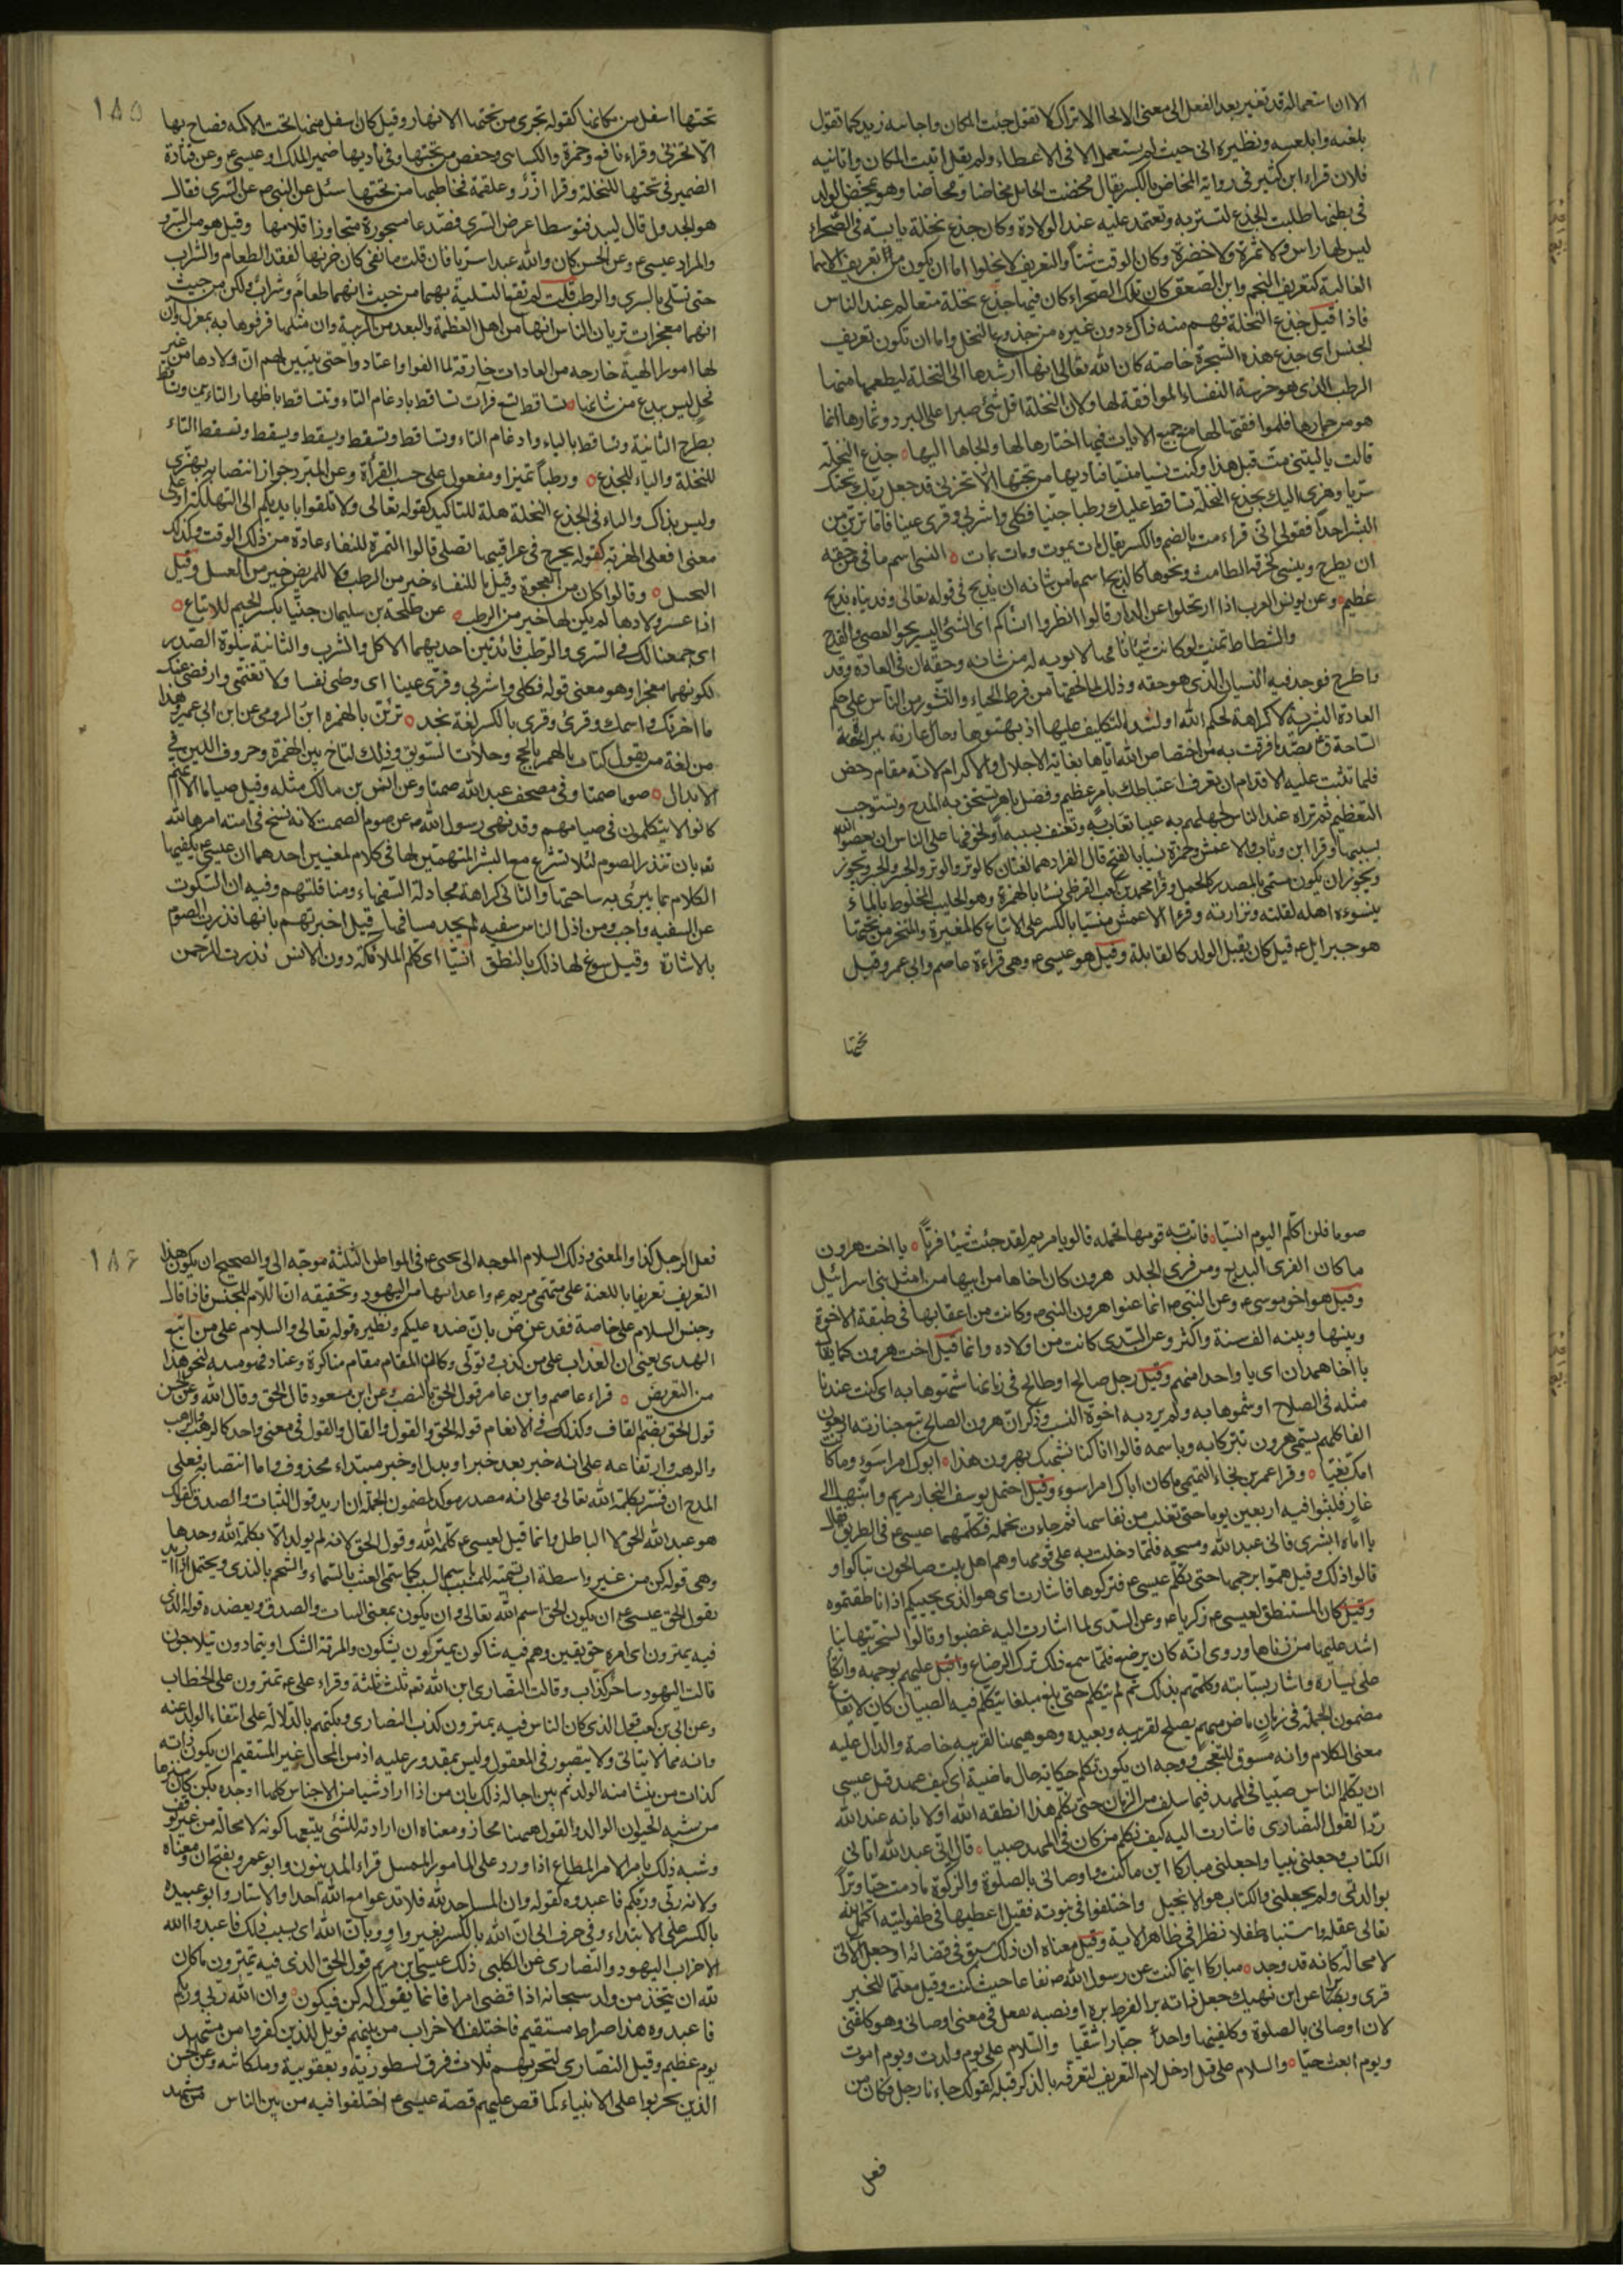 الا ان استعماله قد تغير بعد النقل الى معنى الالجا الا تراك لا تقول جئت المكان واجاءنيه زيد كما تقول
بلغته وابلغنيه ونظيره اتى حيث لم يستعمل الا في الاعطاء ولم يقل اتيت المكان واتانيه
فلان قراء ابن كثير في رواية المخاض بالكسر يقال مخضت الحامل مخاضا ومخاضا وهو تمخض الولد
في بطنها طلبت الجذع لتستر به وتعتمد عليه عند الولادة وكان جذع نخلة يابسة في الصحراء
ليس لها راس ولا ثمرة ولا خضرة وكان الوقت شتاً والتعريف لا يخلوا اما ان يكون من تعريف الاسما
الغالبة كتعريف النجم وابن الصعق كان تلك الصحراء كان فيها جذع نخلة متعالم عند الناس
فاذا قيل جذع النخلة فهم منه ذاك دون غيره من جذوع النخل واما ان تكون تعريف
الجنس اى جذع هذه الشجرة خاصة كان الله تعالى انما ارشدها الى النخلة ليطعمها منها
الرطب الذى هو خرسة النفساء الموافقة لها ولان النخلة اقل شئ صبرا على البرد وثمارها انما
هو من جمارها فلموافقتها لها مع جمع الايات فيها اختارها لها والجاها اليها جذع النخلة
قالت ياليتنى مت قبل هذا وكنت نسيا منسيا فناديها من تحتها الا تحزنى قد جعل ربك تحتك
سريا وهزى اليك بجذع النخلة تساقط عليك رطبا جنيا فكلى واشربى وقرى عينا فاما ترين من
البشر احداً فقولى انى قراء مت بالضم والكسر يقال مات يموت ومات يمات النسى اسم ما من حقه
ان يطرح وينسى كخرقة الطامث ونحوها كالذبح اسم ما من شانه ان يذبح في قوله تعالى وفديناه بذبح
عظيم وعن يونس العرب اذا ارتحلوا عن الدار قالوا انظروا انساكم اى الشئ اليسير نحو العصى والقدح
والشظاظ تمنت لو كانت شيئا تافها لا يوبه له من شانه وحقه ان في العادة وقد
واطرح فوجد فيه النسيان الذى هو حقه وذلك لما لحقها من فرط الحياء والتشور من الناس على حكم
العادة البشرية لا كراهة لحكم الله او لشدة التكليف عليها اذ بهتوها وحال عارفة ببراءة
الساحة وبضد ما قرفت به من اختصاص الله اياها بغاية الاجلال والاكرام لانه مقام دحض
قلما تثبت عليه الاقدام ان تعرف اعتباطك بامر عظيم وفضل باهر تستحق به المدح وتستوجب
التعظيم ثم تراه عند الناس لجهلهم به عيبا تعاب به وتعنف بسببه او لخوفها على الناس ان يعصوا الله
بسببها وقرا ابن وثاب والاعمش وحمزة نسيا بالفتح قال الفرا دهما لغتان كالوتر والوتر والجسر والجسر وتجوز
ويجوز ان يكون مسمى بالمصدر كالحمل وقرا محمد بن كعب القرظى نسئا بالهمزة وهو الحليب المخلوط بالماء
ينسوءه اهله لقلته ونزارته وقرأ الاعمش منسيا بالكسر على الاتباع كالمغيرة والمنخر من تحتها
هو جبرايل ع قيل كان يقبل الولد كالقابلة وقيل هو عيسى ع وهى قراءة عاصم وابى عمرو وقيل
تحتها
١٨٥
تحتها اسفل من مكانها كقوله تجرى من تحتها الانهار وقيل كان اسفل منها تحت الاكمة فصاح بها
الا تحزنى وقراء نافع وحمزة والكسائى وحفص من تحتها وفى ناديها ضمير الملك او عيسى ع وعن قتادة
الضمير فى تحتها للنخلة وقرا زر وعلقمة فخاطبها من تحتها سئل عن النبى ص عن السرى فقال
هو الجدول قال لبيد فتوسطا عرض السرى فصدعا مسجورة متجاوزا قلامها وقيل هو من السرو
والمراد عيسى ع وعن الحسن كان والله عبدا سريا فان قلت ما نفى كان حزنها لفقد الطعام والشراب
حتى تسلى بالسرى والرطب قلت لم تقع التسلية بهما من حيث انهما طعام وشراب ولكن من حيث
انهما معجزات تريان الناس انها من اهل العظمة والبعد من الريبة وان مثلها قرفوها به بمعزل وان
لها امورا الهية خارجه من العادات خارقة لما الفوا واعتادوا حتى يتبين لهم ان ولادها من غير
فحل ليس ببدع من شانها تساقط تسع قرآت تساقط بادغام التاء وتتساقط باظهار التاءين وتساقط
بطرح الثانية ويساقط بالياء وادغام التاء وتساقط وتسقط ويسقط وتسقط ويسقط التاء
للنخلة والياء للجذع ورطباً تميزا ومفعول على حسب القرأة وعن المبرد جواز انتصابه بهزى
وليس بذاك والباء فى الجذع النخلة صلة للتاكيد كقوله تعالى ولا تلقوا بايديكم الى التهلكة او على
معنى افعلى الهز به كقوله يجرح فى عراقيبها نصلى قالوا التمرة للنفساء عادة من ذلك الوقت وكذلك
التحنيك وقالوا كان من العجوة وقيل ما للنفساء خير من الرطب ولا للمريض خير من العسل وقيل
اذا عسر ولادها لم يكن لها خير من الرطب عن طلحة بن سليمان جنيا بكسر الجيم للاتباع
اى جمعنا لك فى السرى والرطب فائدتين احديهما الاكل والشرب والثانية سلوة الصدر
لكونهما معجزا وهو معنى قوله فكلى واشربى وقرى عينا اى وطبى نفسا ولا تغتمى وارفضى عنك
ما احزنك واهمك وقرئ وقرى بالكسر لغة نجد ترئن بالهمزة ابن الرومى عن ابى عمرو وهذا
من لغة من يقول لبات بالحج وحلات السويق وذلك لتاخ بين الهمزة وحروف اللين فى
الابدال صوما صمتا وفى مصحف عبد الله صمتا وعن انس بن مالك مثله وقيل صياما الا انهم
كانوا لا يتكلمون فى صيامهم وقد نهى رسول الله ص عن صوم الصمت لانه نسخ فى امته امرها الله
تع بان تنذر الصوم لئلا تشرع مع البشر المتهمين لها فى كلام لمعنيين احدهما ان عيسى ع يكفيها
الكلام بما يبرى به ساحتها والثانى كراهة مجادلة السفهاء ومناقلتهم وفيه ان السكوت
عن السفيه واجب ومن اذل الناس سفيه لم يجد مسافها قيل اخبرتهم بانها نذرت الصوم
بالاشارة وقيل سوغ لها ذلك بالنطق انسيا اى اكلم الملائكة دون الانس نذرت للرحمن
صوما فلن اكلم اليوم انسيا فاتت به قومها تحمله قالوا يا مريم لقد جئت شيئا فريا يا اخت هرون
ما كان الفرى البديع ومن فرى الجلد هرون كان اخاها من ابيها من امثل بنى اسرائيل
وقيل هو اخو موسى ع وعن النبى ص انما عنوا هرون النبى م وكانت من اعقابها فى طبقة الاخوة
وبينها وبينه الف سنة واكثر وعن السدى كانت من اولاده وانما قيل اخت هرون كما يقال
يا اخا همدان اى يا واحدا منهم وقيل رجل صالح او طالح فى زمانها شبهوها به اى كنت عندنا
مثله فى الصلاح او شتموها به ولم يرد به اخوة النسب وذكر ان هرون الصالح تبع جنازته اربعون
الفا كلهم يسمى هرون تبركا به وباسمه قالوا انا كنا نشبهك بهرون هذا ابوك امرا سوء وما كانت
امك بغيا وقرا عمر بن لجاء التميمى ما كان اباك امرا سوء وقيل احتمل يوسف النجار مريم وابنها الى
غار فلبثوا فيه اربعين يوما حتى تعلت من نفاسها ثم جاءت تحمله فكلمهما عيسى ع فى الطريق فقال
يا اماه ابشرى فانى عبد الله ومسيحه فلما دخلت به على قومها وهم اهل بيت صالحون تباكوا و
قالوا ذلك وقيل هموا برجمها حتى تكلم عيسى ع فتركوها فاشارت اى هو الذى يجيبكم اذا ناطقتموه
وقيل كان المستنطق لعيسى ع زكريا ع وعن السدى لما اشارت اليه غضبوا وقالوا لسخريتها بنا
اشد علينا من زناها وروى انه كان يرضع فلما سمع ذلك ترك الرضاع واقبل عليهم بوجهه واتكأ
على يساره واشار بسبابته وكلمهم بذلك ثم لم يتكلم حتى بلغ مبلغا يتكلم فيه الصبيان كان لايقاع
مضمون الجملة فى زمان ماض مبهم يصلح لقريبه وبعيده وهو هيهنا لقريبه خاصة والدال عليه
معنى الكلام وانه مسوق للتعجب ووجه ان يكون نكلم حكاية حال ماضية اى كيف عهد قبل عيسى
ان يكلم الناس صبيا فى المهد فيما سلف من الزمان حتى نكلم هذا انطقه الله اولا بانه عند الله
ردا لقول النصارى فاشارت اليه كيف نكلم من كان فى المهد صبيا قال انى عبد الله اتانى
الكتاب وجعلنى نبيا واجعلنى مباركا اين ما كنت واوصانى بالصلوة والزكوة ما دمت حيا وبرا
بوالدتى ولم يجعلنى والكتاب هو الانجيل واختلفوا فى نبوته فقيل اعطيها فى طفوليته اكمل الله
تعالى عقله واستنباه طفلا نظرا فى ظاهر الاية وقيل معناه ان ذلك سبق فى قضائه او جعل الاتى
لا محالة كانه قد وجد مباركا اينما كنت عن رسول الله ص نفاعا حيث كنت وقيل معلما للخير
قرى وبرا عن ابن نهيك جعل ذاته برا لفرط بره او نصبه بفعل فى معنى اوصانى وهو كلفنى
لان اوصانى بالصلوة وكلفنيها واحد جبارا شقيا والسلام على يوم ولدت ويوم اموت
ويوم ابعث حيا والسلام على قيل ادخل لام التعريف لتعرفه بالذكر قبله كقولك جاءنا رجل فكان من
فعل
١٨٦
فعل الرجل كذا والمعنى وذلك السلام الموجه الى يحيى ع فى المواطن الثلثة موجه الى والصحيح ان يكون هذا
التعريف تعريفا باللعنة على متهمى مريم ع واعدائها من اليهود وتحقيقه ان اللام للجنس فاذا قال
وجنس السلام على خاصة فقد عرض بان ضده عليكم ونظيره قوله تعالى والسلام على من اتبع
الهدى يعنى ان العذاب على من كذب وتولى وكان المقام مقام مناكرة وعناد فهو مئنة لنحو هذا
من التعريض قراء عاصم وابن عامر قول الحق بالنصب وعن ابن مسعود قال الحق وقال الله وعن الحسن
قول الحق بضم القاف وكذلك فى الانعام قوله الحق والقول والقال والقول فى معنى واحد كالرهب والرهب
والرهب وارتفاعه على انه خبر بعد خبر او بدل او خبر مبتداء محذوف واما انتصابه فعلى
المدح ان فسر بكلمة الله تعالى وعلى انه مصدر موكد لمضمون الجملة ان اريد قول الثبات والصدق كقولك
هو عبد الله الحق لا الباطل وانما قيل لعيسى ع كلمة الله وقول الحق لانه لم يولد الا بكلمة الله وحدها
وهى قوله كن من غير واسطة اب تسمية للمسبب باسم السبب كما سمى العشب بالسماء والشحم بالندى ويحتمل اذا اريد
بقول الحق عيسى ع ان يكون الحق اسم الله تعالى وان يكون بمعنى الثبات والصدق ويعضده قوله الذى
فيه يمترون اى امره حق يقين وهم فيه شاكون يمترون يشكون والمرية الشك او يتمارون يتلاجون
قالت اليهود ساحر كذاب وقالت النصارى ابن الله تع ثلث ثلثة وقراء على ع تمترون على الخطاب
وعن ابى بن كعب قول الذى كان الناس فيه يمترون كذب النصارى وبكتهم بالدلالة على انتفاء الولد عنه
وانه مما لا يتاتى ولا يتصور فى المعقول وليس بمقدور عليه اذ من المحال غير المستقيم ان يكون ذاته
كذات من ينشا منه الولد ثم بين احالة ذلك بان من اذا اراد شيئا من الاجناس كلها اوجده بكن كان منزها
من شبه الحيوان الوالد والقول ههنا مجاز ومعناه ان ارادته للشئ يتبعها كونه لا محالة من غير توقف
وشبه ذلك بامر الامر المطاع اذا ورد على المامور الممتثل قراء المدينون وابو عمرو بفتح ان ومعناه
ولانه ربى وربكم فاعبدوه كقوله وان المساجد لله فلا تدعوا مع الله احدا والاستار وابو عبيده
بالكسر على الابتداء وفى حرف ابى ان الله بالكسر بغير واو وبان الله اى بسبب ذلك فاعبدوا الله
الاحزاب اليهود والنصارى عن الكلبى ذلك عيسى ابن مريم قول الحق الذى فيه تمترون ما كان
لله ان يتخذ من ولد سبحانه اذا قضى امرا فانما يقول له كن فيكون وان الله ربى وربكم
فاعبدوه هذا صراط مستقيم فاختلف الاحزاب من بينهم فويل للذين كفروا من مشهد
يوم عظيم وقيل النصارى لتحزبهم ثلاث فرق نسطورية ويعقوبية وملكائيه وعن الحسن
الذين تحزبوا على الانبياء كما قص عليهم قصة عيسى ع اختلفوا فيه من بين الناس من مشهد